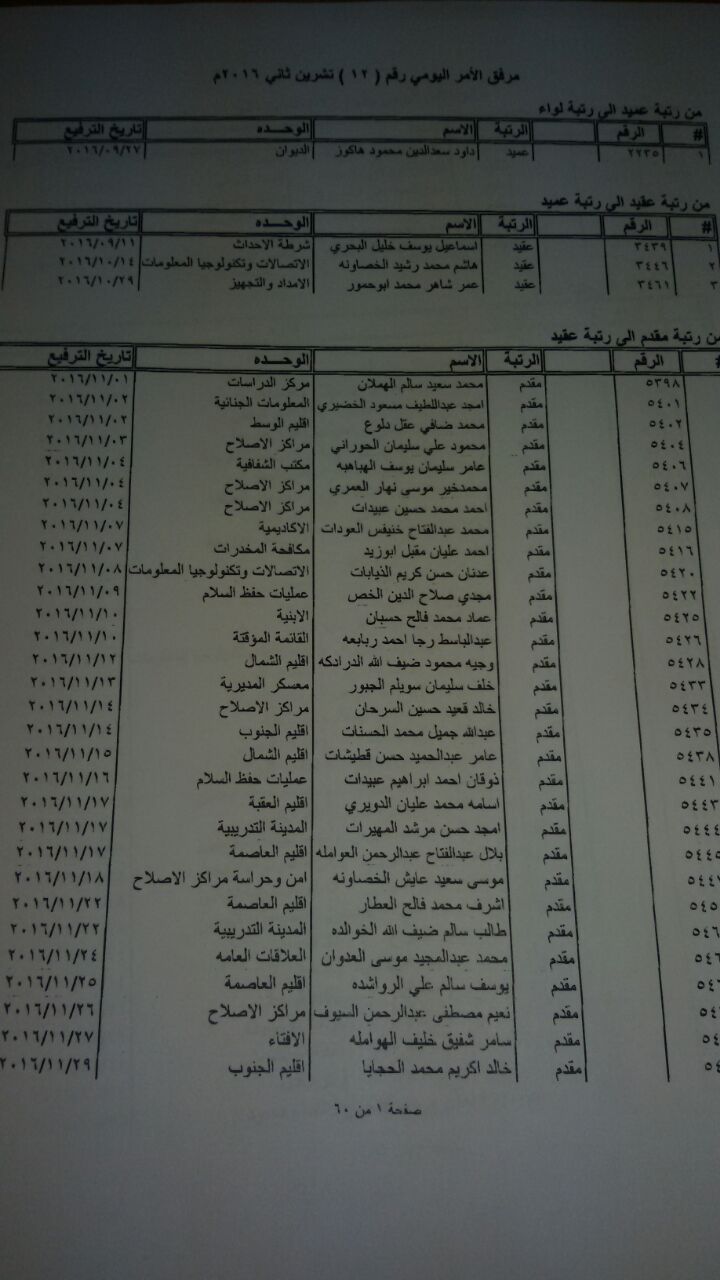 مرفق الأمر اليومي رقم ( ١٢ ) تشرين ثاني ٢٠١٦م
من رتبة عميد الى رتبة لواء
# الرقم الرتبة الاسم الوحـــده تاريخ الترفيع
١ ٢٢٣٥ عميد داود سعدالدين محمود هاكوز الديوان ٢٠١٦/٠٩/٢٧
من رتبة عقيد الى رتبة عميد
# الرقم الرتبة الاسم الوحـــده تاريخ الترفيع
١ ٣٤٣٩ عقيد اسماعيل يوسف خليل البحري شرطة الاحداث ٢٠١٦/٠٩/١١
٢ ٣٤٤٦ عقيد هاشم محمد رشيد الخصاونه الاتصالات وتكنولوجيا المعلومات ٢٠١٦/١٠/١٤
٣ ٣٤٦١ عقيد عمر شاهر محمد ابوحمور الامداد والتجهيز ٢٠١٦/١٠/٢٩
من رتبة مقدم الى رتبة عقيد
# الرقم الرتبة الاسم الوحـــده تاريخ الترفيع
٥٣٩٨ مقدم محمد سعيد سالم الهملان مركز الدراسات ٢٠١٦/١١/٠١
٥٤٠١ مقدم امجد عبداللطيف مسعود الخضيري المعلومات الجنائية ٢٠١٦/١١/٠٢
٥٤٠٢ مقدم محمد ضافي عقل دلوع اقليم الوسط ٢٠١٦/١١/٠٢
٥٤٠٤ مقدم محمود علي سليمان الحوراني مراكز الاصلاح ٢٠١٦/١١/٠٣
٥٤٠٦ مقدم عامر سليمان يوسف الهباهبه مكتب الشفافية ٢٠١٦/١١/٠٤
٥٤٠٧ مقدم محمدخير موسى نهار العمري مراكز الاصلاح ٢٠١٦/١١/٠٤
٥٤٠٨ مقدم احمد محمد حسين عبيدات مراكز الاصلاح ٢٠١٦/١١/٠٤
٥٤١٥ مقدم محمد عبدالفتاح خنيفس العودات الاكاديمية ٢٠١٦/١١/٠٧
٥٤١٦ مقدم احمد عليان مقبل ابوزيد مكافحة المخدرات ٢٠١٦/١١/٠٧
٥٤٢٠ مقدم عدنان حسن كريم الذيابات الاتصالات وتكنولوجيا المعلومات ٢٠١٦/١١/٠٨
٥٤٢٢ مقدم مجدي صلاح الدين الخص عمليات حفظ السلام ٢٠١٦/١١/٠٩
٥٤٢٥ مقدم عماد محمد فالح حسبان الابنية ٢٠١٦/١١/١٠
٥٤٢٦ مقدم عبدالباسط رجا احمد ربابعه القائمة المؤقتة ٢٠١٦/١١/١٠
٥٤٢٨ مقدم وجيه محمود ضيف الله الدرادكه اقليم الشمال ٢٠١٦/١١/١٢
٥٤٣٣ مقدم خلف سليمان سويلم الجبور معسكر المديرية ٢٠١٦/١١/١٣
٥٤٣٤ مقدم خالد قعيد حسين السرحان مراكز الاصلاح ٢٠١٦/١١/١٤
٥٤٣٥ مقدم عبدالله جميل محمد الحسنات اقليم الجنوب ٢٠١٦/١١/١٤
٥٤٣٨ مقدم عامر عبدالحميد حسن قطيشات اقليم الشمال ٢٠١٦/١١/١٥
٥٤٤١ مقدم ذوقان احمد ابراهيم عبيدات عمليات حفظ السلام ٢٠١٦/١١/١٦
٥٤٤٣ مقدم اسامه محمد عليان الدويري اقليم العقبة ٢٠١٦/١١/١٧
٥٤٤٤ مقدم امجد حسن مرشد المهيرات المدينة التدريبية ٢٠١٦/١١/١٧
٥٤٤٥ مقدم بلال عبدالفتاح عبدالرحمن العوامله اقليم العاصمة ٢٠١٦/١١/١٧
٥٤٤٧ مقدم موسى سعيد عايش الخصاونه امن وحراسة مراكز الاصلاح ٢٠١٦/١١/١٨
٥٤٥ مقدم اشرف محمد فالح العطار اقليم العاصمة ٢٠١٦/١١/٢٢
٥٤٦ مقدم طالب سالم ضيف الله الخوالده المدينة التدريبية ٢٠١٦/١١/٢٢
٥٤٦ مقدم محمد عبدالمجيد موسى العدوان العلاقات العامه ٢٠١٦/١١/٢٤
٥٤٦ مقدم يوسف سالم علي الرواشده اقليم العاصمة ٢٠١٦/١١/٢٥
٥٤ مقدم نعيم مصطفى عبدالرحمن السيوف مراكز الاصلاح ٢٠١٦/١١/٢٦
٥٤ مقدم سامر شفيق خليف الهوامله الافتاء ٢٠١٦/١١/٢٧
٥٤ مقدم خالد اكريم محمد الحجايا اقليم الجنوب ٢٠١٦/١١/٢٩
صفحة ١ من ٦٠